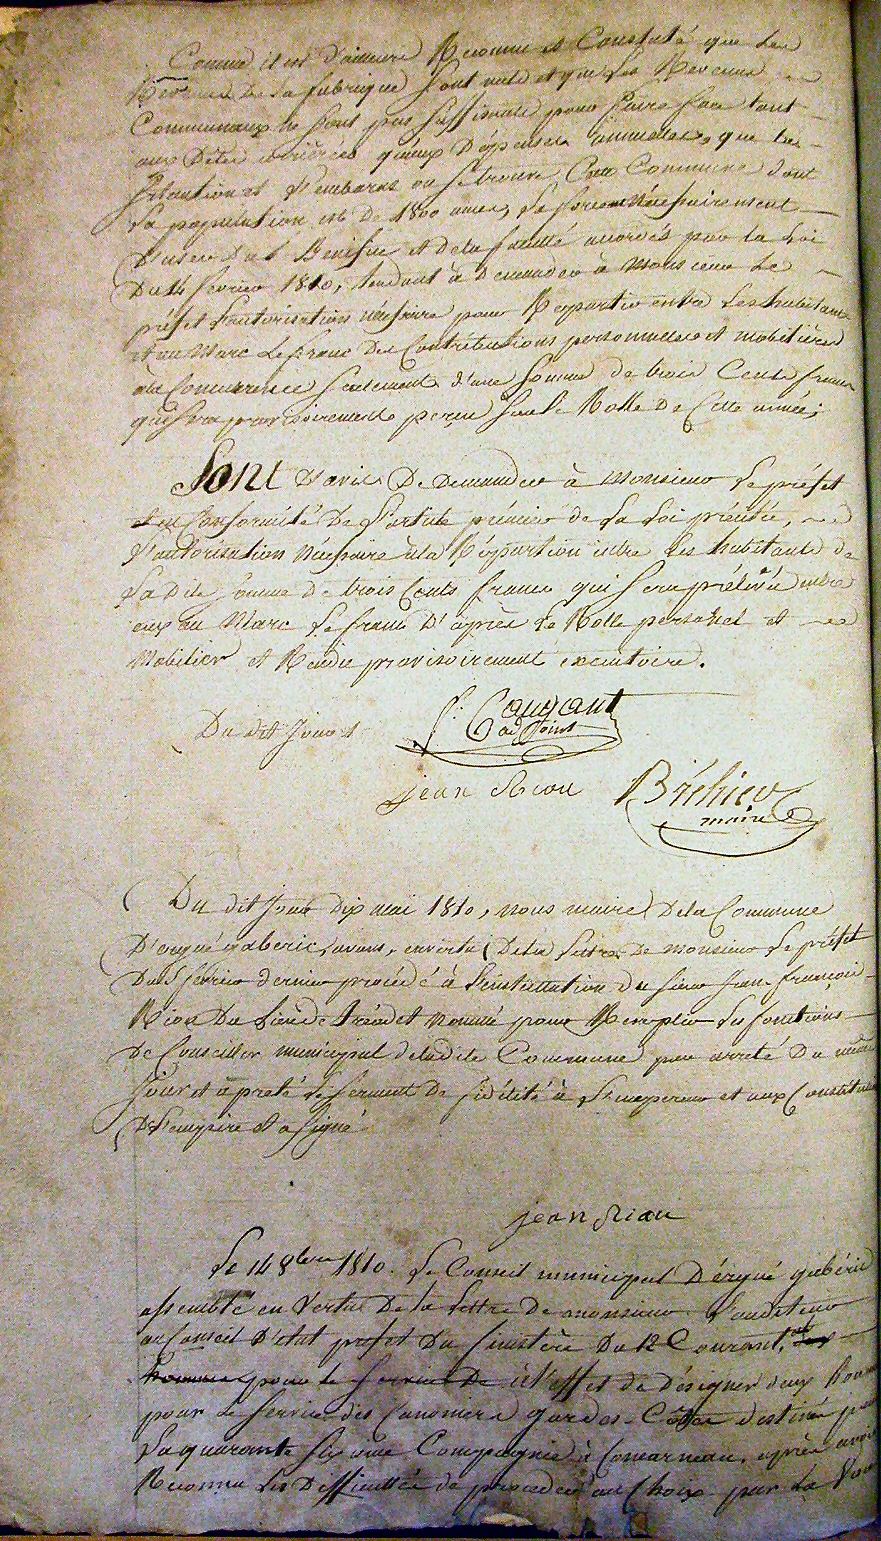 Comme il est d'ailleurs Reconnu et Constaté que les
Revenus de la fabrique sont nuls et que les Revenus
Communaux ne sont pas suffisants pour faire face tant
aux Dettes arriérées qu'aux Dépenses annuelles, que les
Situation et l'embaras ou se trouve Cette Commune dont
la population est de 1800 ames, la force nécessairement
D'user du Bénéfice et de la faculté accordés par la Loi
Du 14 février 1810, tendant à Demander à Monsieur Le
préfet l'autorisation nécessaire pour Répartir entre les habitans
et au Marc Le franc des Contributions personnelles et mobilières
à la Concurrence seulement d'une somme de trois Cents francs
qui sera provisoirement perçu sur le Rolle De Cette année;
Sont d'avis De Demander à Monsieur le préfet
et en Conformité De l'article prémier de la Loi précitée,
l'autorisation nécessaire à la Répartion entre les habitants de
la Dite somme de trois Cents francs qui sera prélévé entre
eux au Marc le franc D'après le Rolle personel et
Mobilier et Rendu provisoirement exécutoire.
Du dit Jour
Caugant
adjoint
jean Riou
Bréhier
maire
Du dit Jour Dix mai 1810, nous maire De la Commune
D'ergué gaberic, avons, en vertu De la lettre De monsieur le préfet
Du 5 février dernier procédé à l'installation du sieur Jean françois
Riou Du lieu de tréodet nommé pour Remplir les fonctions
De Conseiller municipal de ladite Commune par arrêté Du même
Jour et a preté le serment de fidélité à l'empereur et aux Constitutions
De l'empire et a signé
jean Riou
Le 14 8bre 1810. Le Conseil municipal D'érgué gabéric
assemblé en Vertu De la Lettre De monsieur l'auditeur
au Conseil D'état préfet Du finistère Du 12 Courant,
hommes pour le service De à l'effet de Désigner deux hommes
pour le service des Canoniers gardes-Côtes destinés pour
la quarante sixième Compagnie à Concarneau, après avoir
Reconnu les Difficultés de procéder au Choix par la Voie